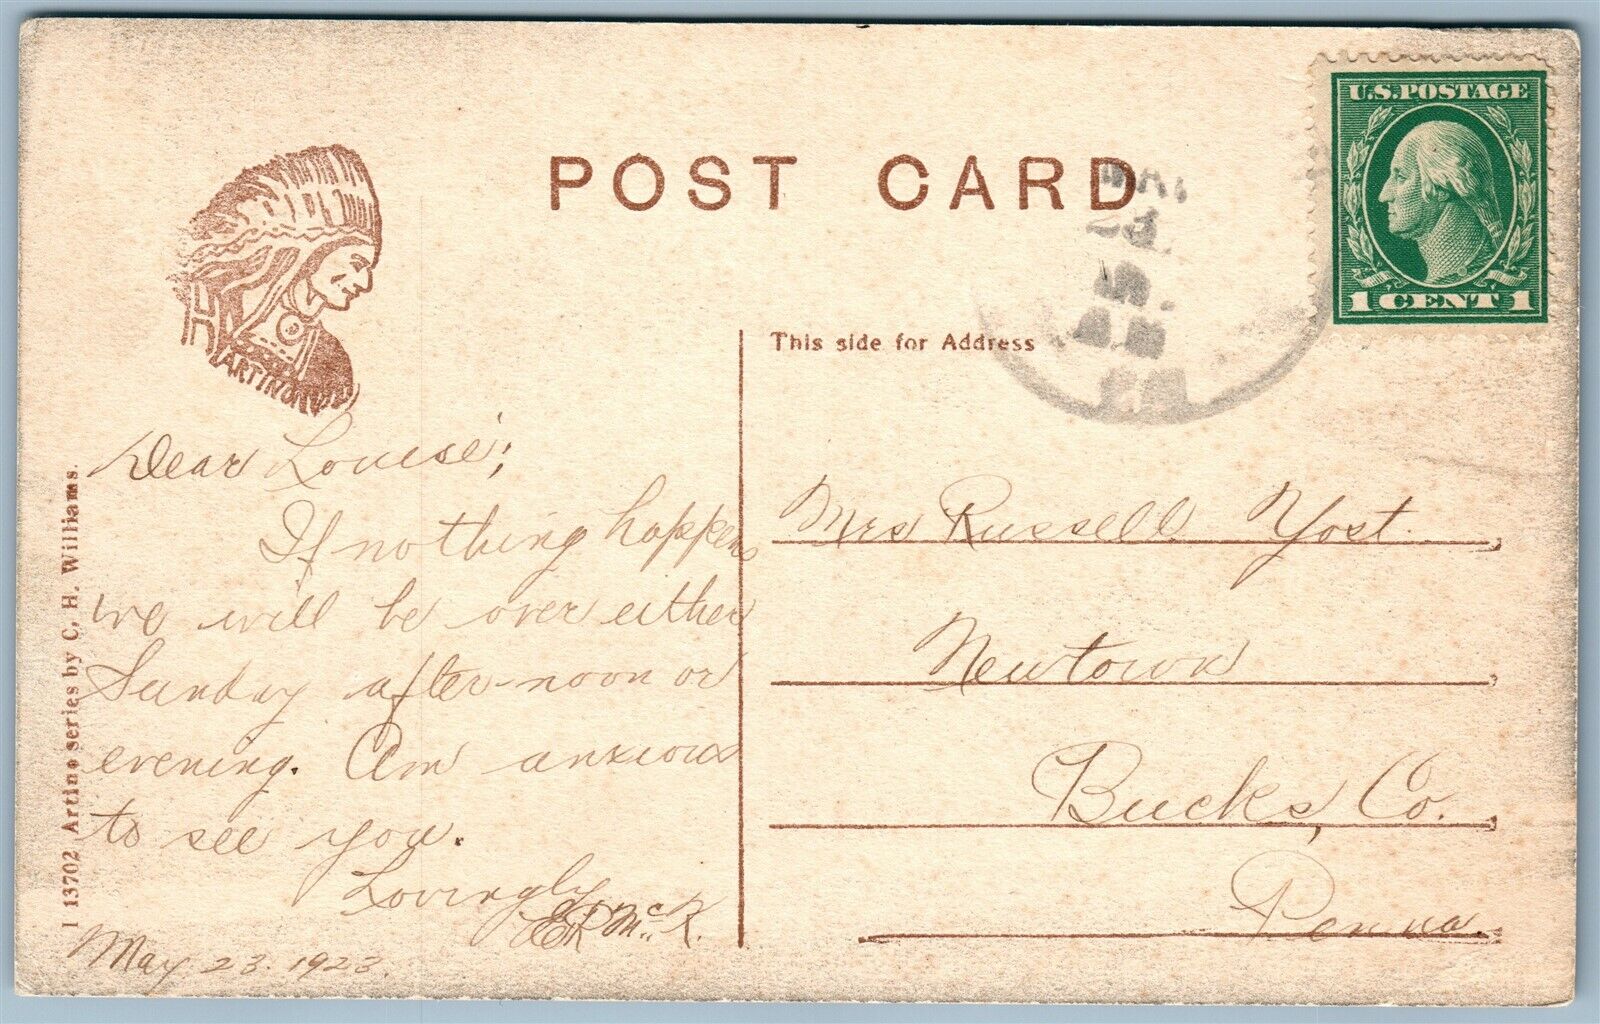 POST CARD
U.S.POSTAGE
1 CENT 1
ARTINO
This side for Address
Dear Louise;
If nothing happens
we will be over either
Sunday after-noon or
evening. Am anxious
to see you.
Lovingly
E R Mc.K.
May 23. 1923.
I 13702 Artino series by C. H. Williams.
Mrs Russell Yost.
Newtown
Bucks, Co.
Penna.